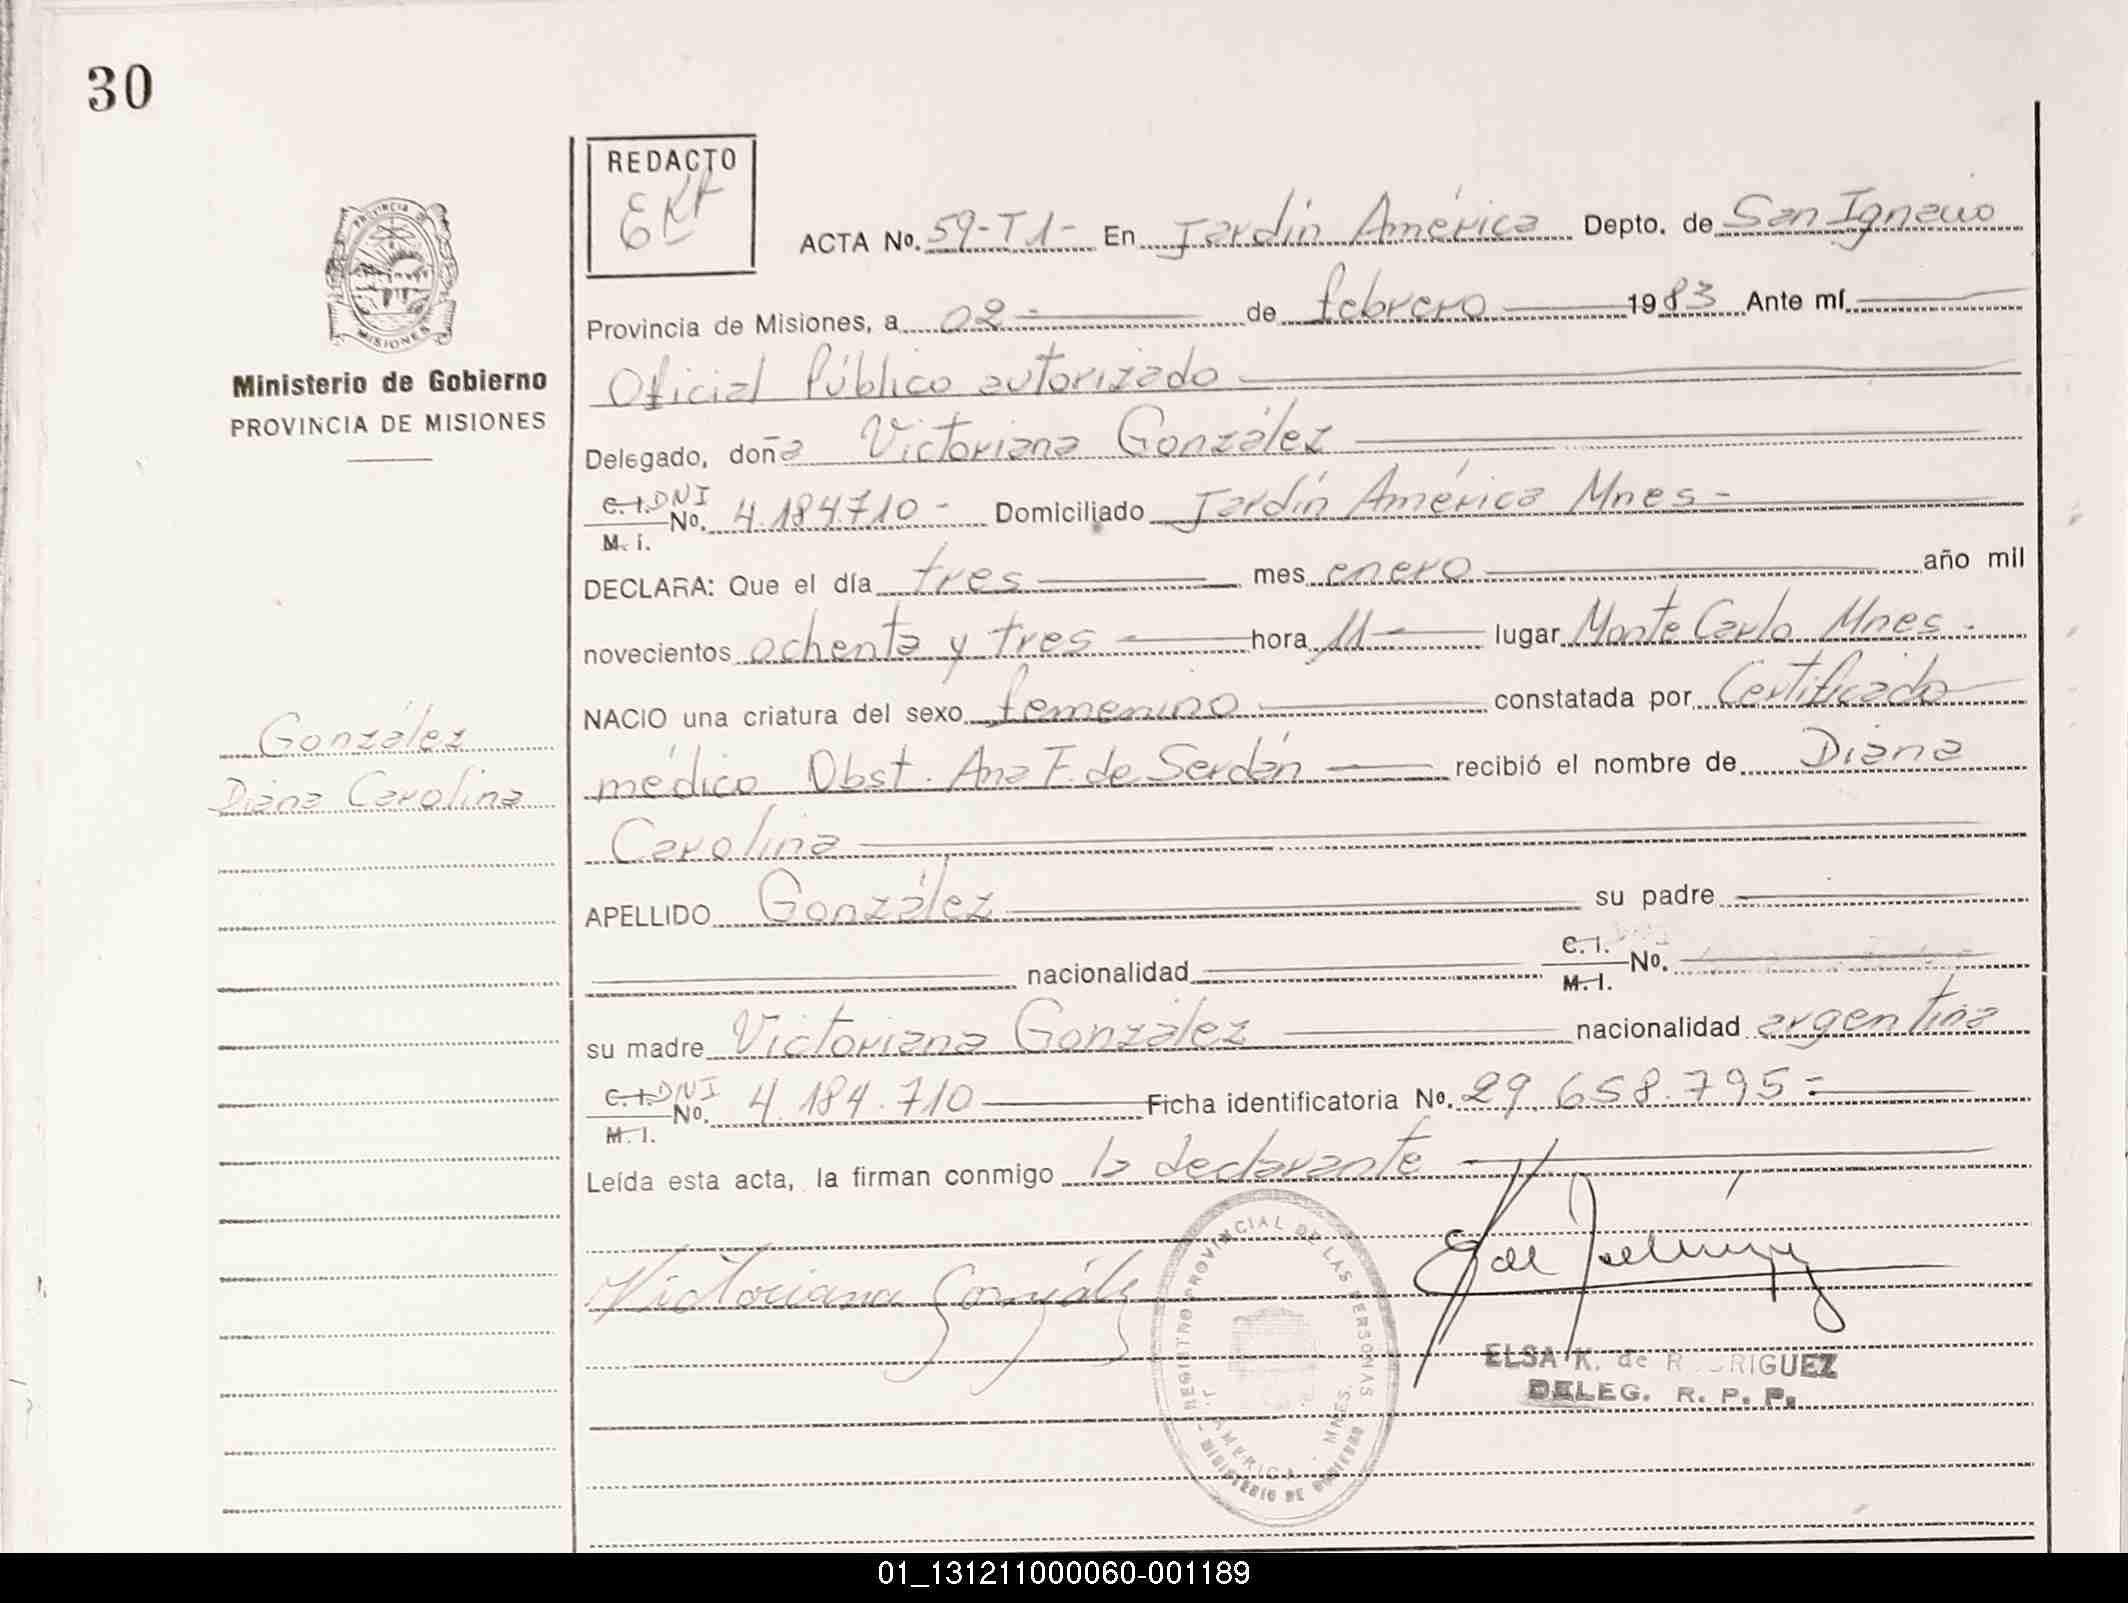 30
REDACTO
EKR
ACTA No. 59-T1- En Jardín América Depto. de San Ignacio
PROVINCIA DE
MISIONES
Provincia de Misiones, a 02 - de febrero 1983 Ante mí
Ministerio de Gobierno
PROVINCIA DE MISIONES
Oficial Público autorizado
Delegado, doña Victoriana González
C.I. DNI
No. 4.184.710 - Domiciliado Jardín América Mnes -
M. i.
DECLARA: Que el día tres mes enero año mil
novecientos ochenta y tres hora 11 - lugar Monte Carlo Mnes -
NACIO una criatura del sexo femenino constatada por Certificado
González
Diana Carolina
médico Obst. Ana F. de Serdán recibió el nombre de Diana
Carolina
APELLIDO González su padre
nacionalidad C. I. No.
M. I.
su madre Victoriana González nacionalidad argentina
C. I. DNI
No. 4.184.710 Ficha identificatoria No. 29.658.795 =
M. I.
Leída esta acta, la firman conmigo la declarante
Victoriana González
REGISTRO PROVINCIAL DE LAS PERSONAS
J. AMERICA - MNES.
MINISTERIO DE GOBIERNO
ELSA K. de R RIGUEZ
DELEG. R. P. P.
01_131211000060-001189